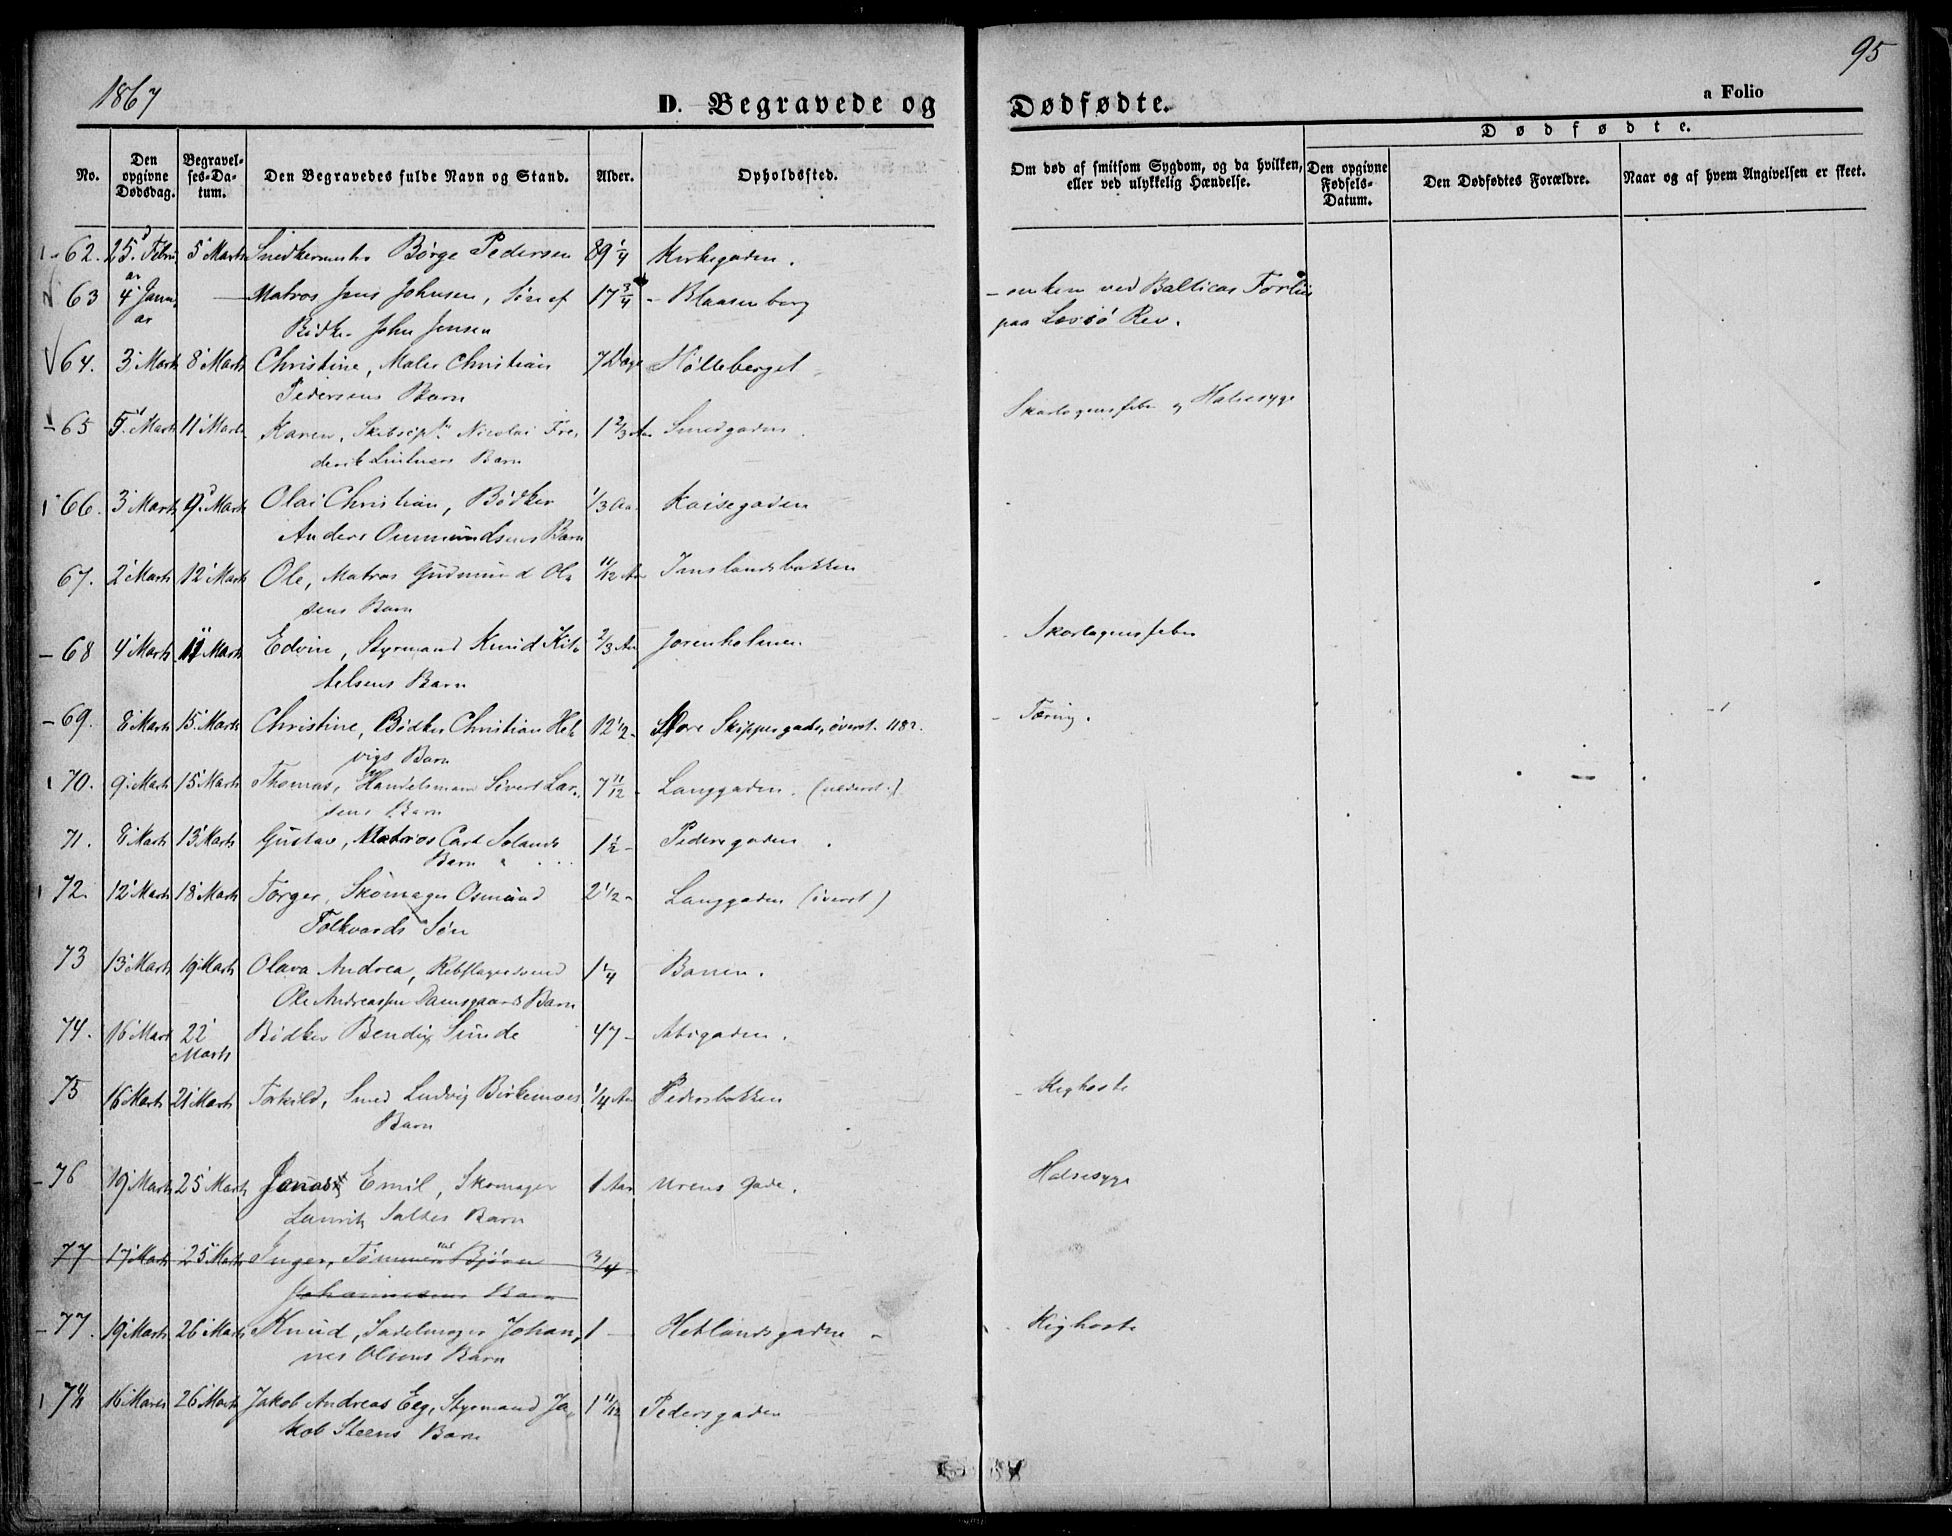 1867
D. Begravede og Dødfødte.
a Folio
95
Dødfødte.
No.
Den opgivne Dødsdag.
Begravelses-Datum.
Den Begravedes fulde Navn og Stand.
Alder.
Opholdssted.
Om død af smitsom Sygdom, og da hvilken, eller ved ulykkelig Hændelse.
Den opgivne Fødsels-Datum.
Den Dødfødtes Forældre.
Naar og af hvem Angivelsen er skeet.
62. 25 Febru 5 Marts Snedkermester Børge Pedersen 89 1/4 Kirkegaden.
ar
63 4 Janu - Matros Jens Johnsen, Søn af 17 3/4 - Blaasenborg
ar Bødker John Jensen
- ved Balticas Forliis
paa Rev.
64. 3 Marts 8 Marts Christine, Maler Christian 7 Dage Hølleberget
Pedersens Barn
65 5 Marts 11 Marts Karen, Nicolai Fre 1 2/3 Aar Smedgaden
derik Barn
Skarlagensfeber og Halssyge
66. 3 Marts 9 Marts Olai Christian, Bødker 1/3 Aar
Anders Barn
67. 2 Marts 12 Marts Ole, Matros Gudmund Ol 11/12 Aar Janslandsbakken
sens Barn
68 4 Marts 11 Marts Edvin, Styrmand Knud Kit 2/3 Aar Jorenholmen
telsens Barn
- Skarlagensfeber
69. 8 Marts 15 Marts Christine, Bødker Christian Hel 12 1/2 - Store Skippergade, øverst. 118
vigs Barn
- Tæring.
70. 9 Marts 15 Marts Thomas, Handelsmand Sivert Lar 7 11/12 - Langgaden. (nederst.)
sens Barn
71. 8 Marts 13 Marts Gustav, Matros Carl Solands 1 1/2 - Pedersgaden.
Barn
72. 12 Marts 18 Marts Torger, Skomager Osmund 2 1/2 - Langgaden (øverst)
Folkvards Søn
73 13 Marts 19 Marts Olava Andrea, Rebslagersvend 1 1/4 Banen.
Ole Andreassen Damsgaards Barn
74. 16 Mart 22 Marts Bødker Bendix Sunde 47 -
75 16 Marts 21 Marts Torkild, Smed Ludvig Birkemoes 1/4 Aar Pedersbakken
Barn
- Kighoste
76 19 Marts 25 Marts Jonas Emil, Skomager 1 Aar Urens Gade.
Laurits Saltes Barn
Halssyge
77 17 Marts 25 Marts Inger, Tømmermand Bjørn 3/4
Johannesens Barn
77. 19 Marts 26 Marts Knud, Sadelmager Johan 1 - Hetlandsgaden -
nes Olsens Barn
Kighoste
78 16 Marts 26 Marts Jakob Andreas Eeg, Styrmand Ja 1 11/12 Pedersgaden
kob Steens Barn